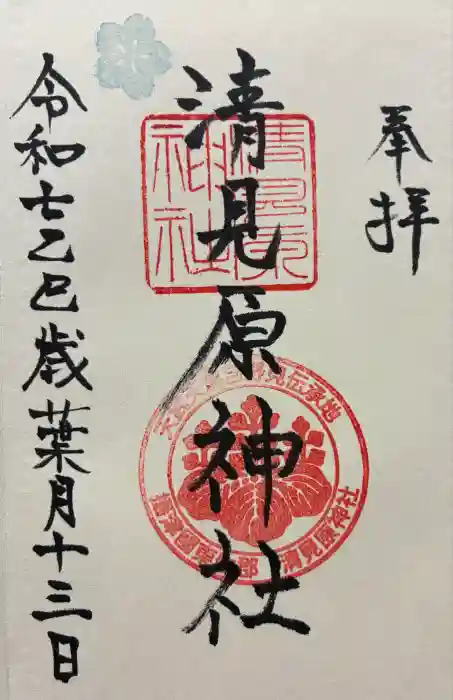 奉拝
清見原神社
令和七乙巳歳葉月十三日
清見原神社
清見原神社